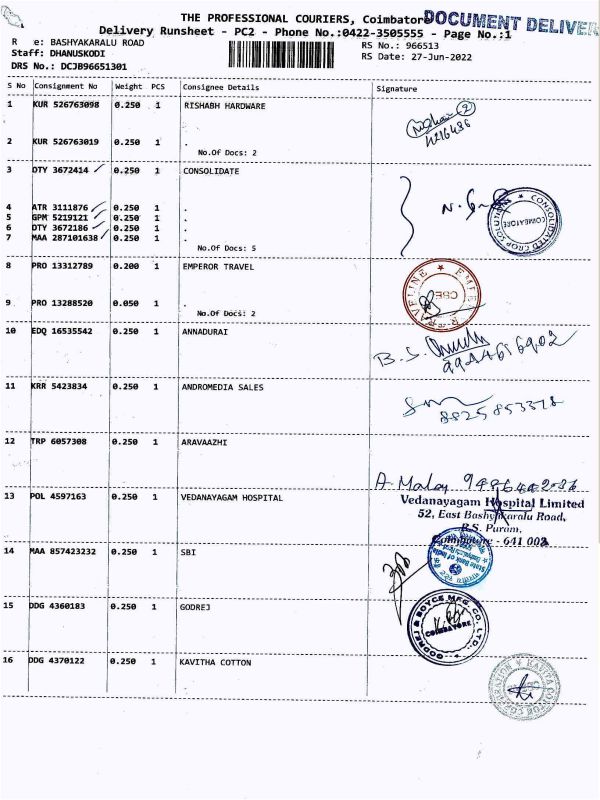 THE PROFESSIONAL COURIERS, Coimbator
DOCUMENT DELIVER
Delivery Runsheet - PC2 - Phone No.:0422-3505555 - Page No.:1
R e: BASHYAKARALU ROAD
RS No.: 966513
Staff: DHANUSKODI
RS Date: 27-Jun-2022
DRS No.: DCJB96651301
S No Consignment No Weight PCS Consignee Details Signature
1 KUR 526763098 0.250 1 RISHABH HARDWARE
2 KUR 526763019 0.250 1 .
No.Of Docs: 2
3 DTY 3672414 0.250 1 CONSOLIDATE
4 ATR 3111876 0.250 1 .
5 GPM 5219121 0.250 1 .
6 DTY 3672186 0.250 1 .
7 MAA 287101638 0.250 1 .
No.Of Docs: 5
CONSOLIDATED CROP SOLUTION
COIMBATORE
8 PRO 13312789 0.200 1 EMPEROR TRAVEL
9 PRO 13288520 0.050 1 .
No.Of Docs: 2
CBE
10 EDQ 16535542 0.250 1 ANNADURAI
B.S.
9944656902
11 KRR 5423834 0.250 1 ANDROMEDIA SALES
8825853378
12 TRP 6057308 0.250 1 ARAVAAZHI
A. Malay
13 POL 4597163 0.250 1 VEDANAYAGAM HOSPITAL
Vedanayagam Hospital Limited
52, East Bashyakaralu Road,
R.S. Puram,
Coimbatore - 641 002
14 MAA 857423232 0.250 1 SBI
State Bank of India
15 DDG 4360183 0.250 1 GODREJ
GODREJ & BOYCE MFG. CO. LTD.
COIMBATORE
16 DDG 4370122 0.250 1 KAVITHA COTTON